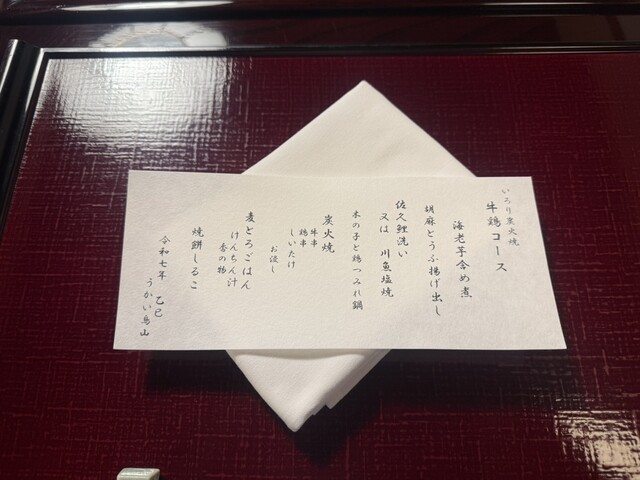 いろり炭火焼
牛鶏コース
海老芋含め煮
胡麻とうふ揚げ出し
佐久鯉洗い
又は 川魚塩焼
木の子と鶏つみれ鍋
炭火焼
牛串
鶏串
しいたけ
お浸し
麦とろごはん
けんちん汁
香の物
焼餅しるこ
令和七年 乙巳
うかい鳥山